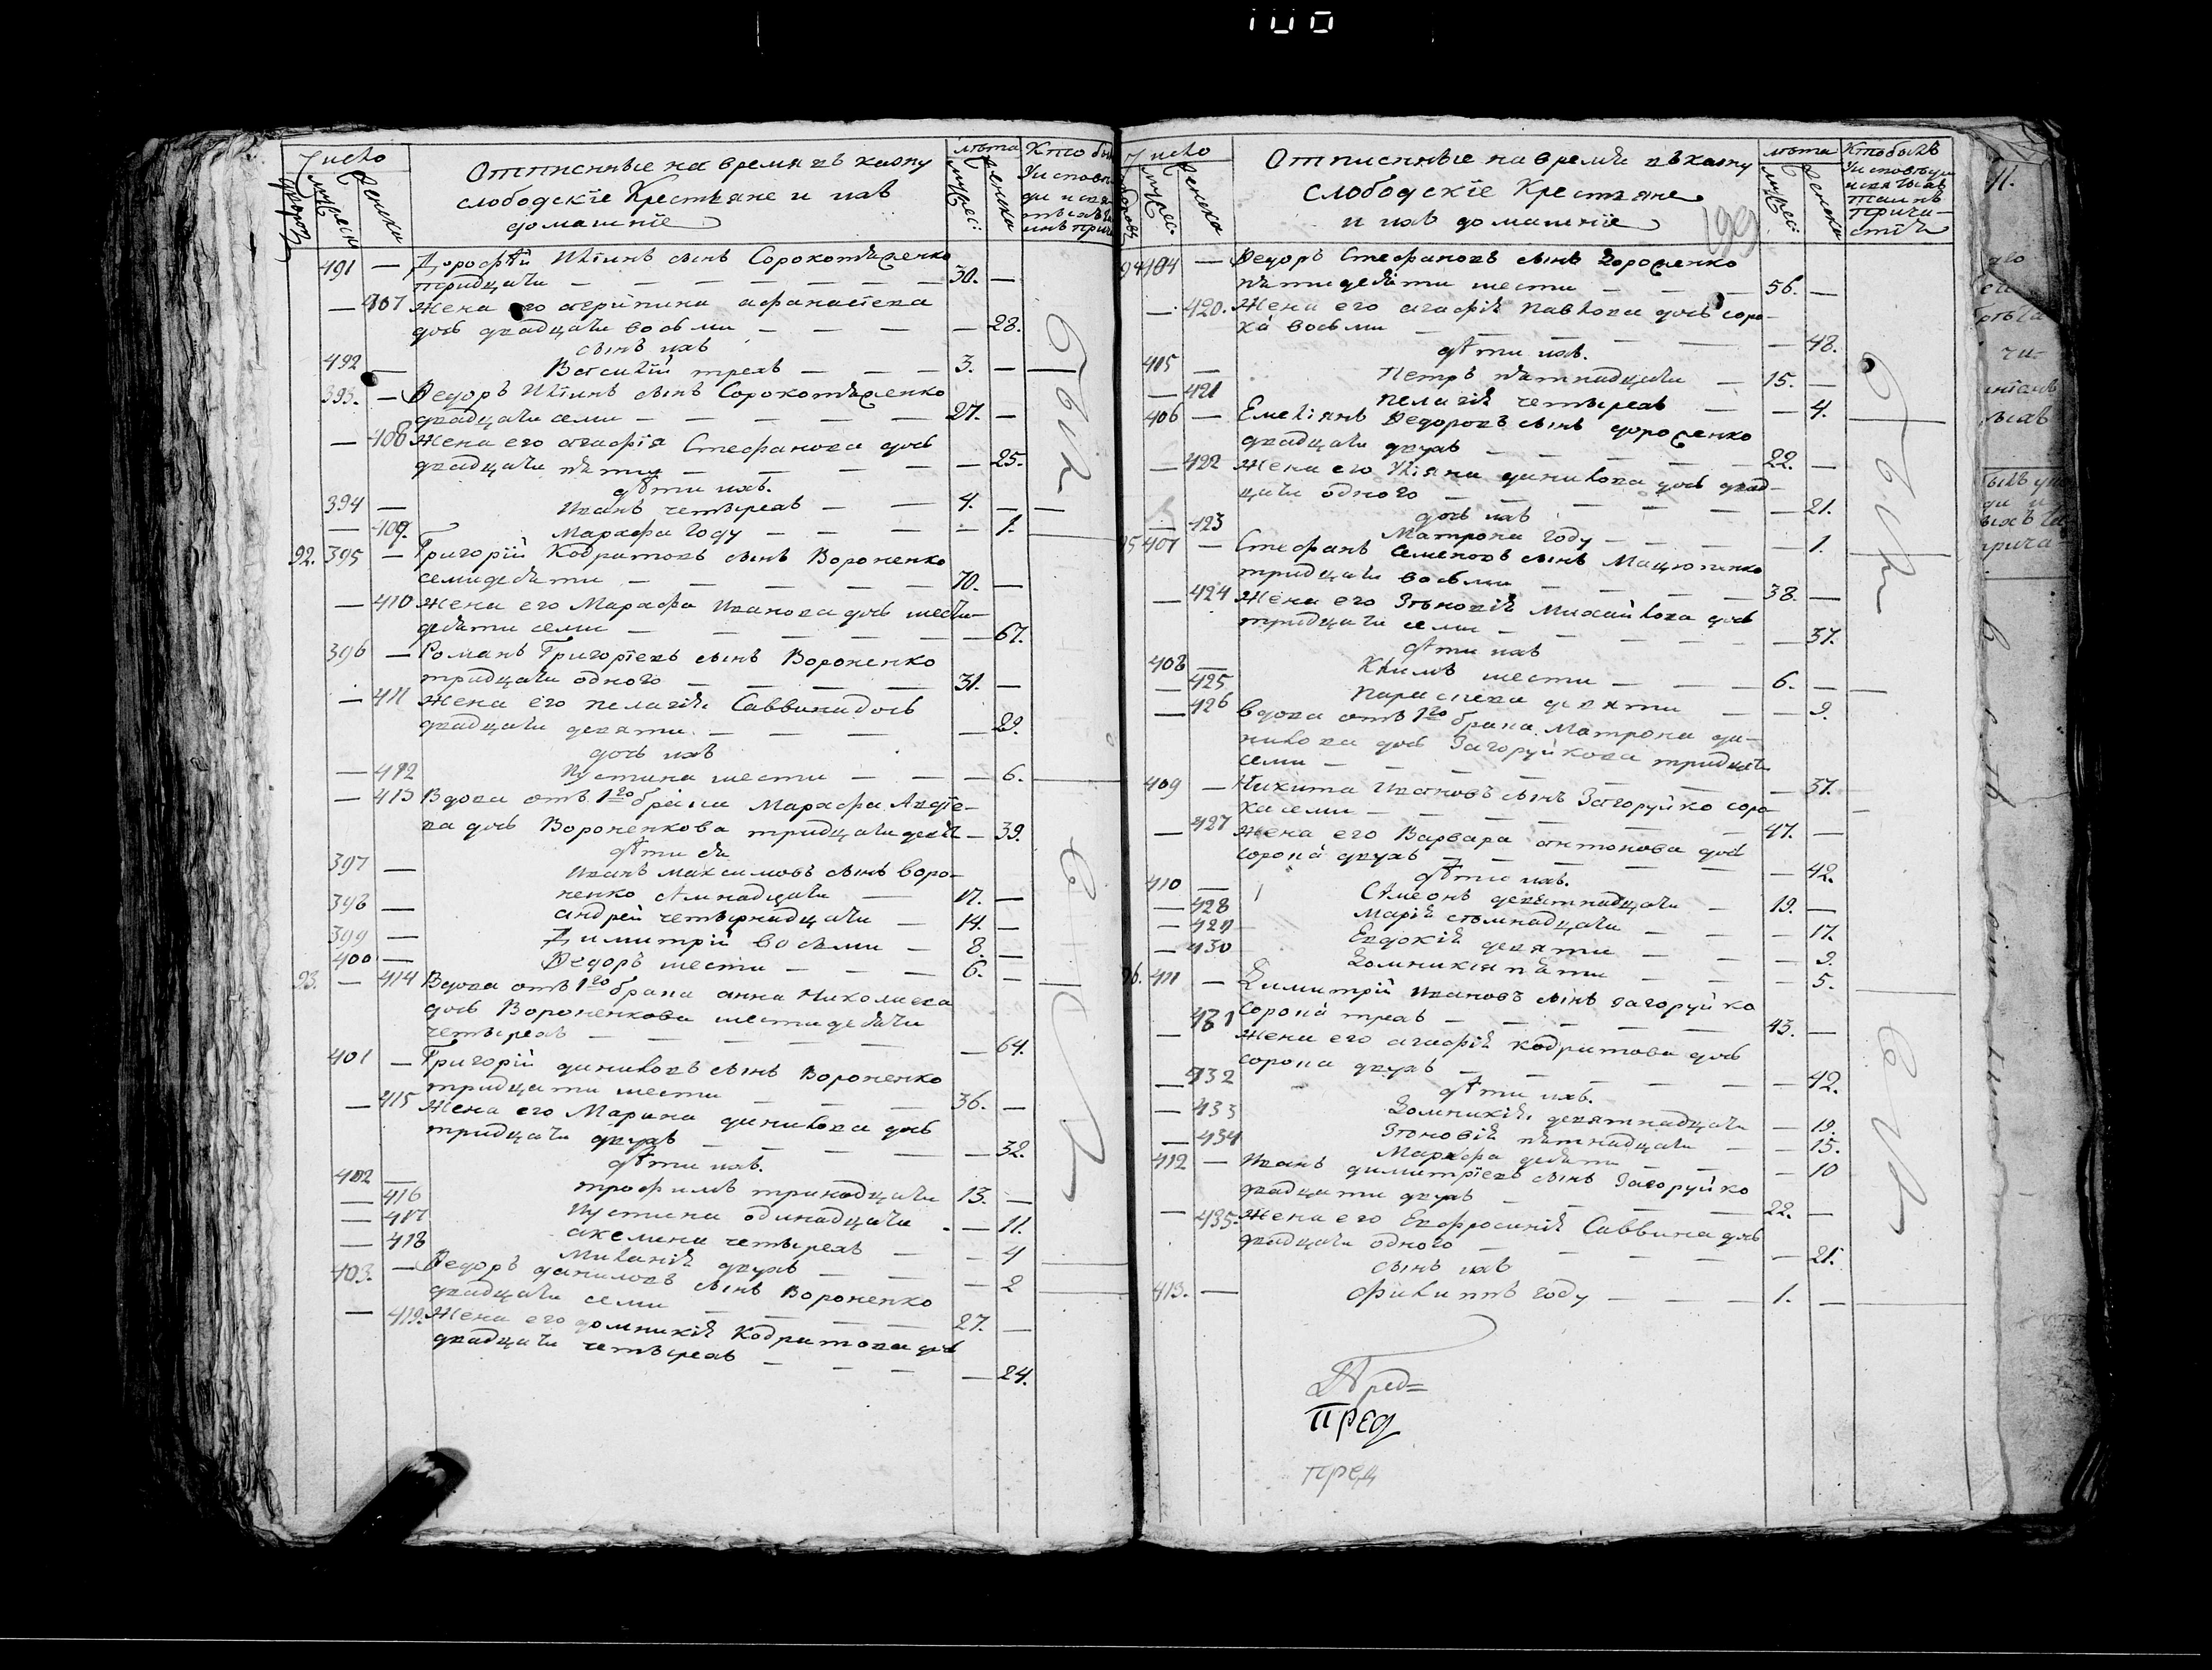 100
Число
дворовъ
мужеск
женска
Отписнные на время въ казну
слободскіе Крестяне и ихъ
домашніе
лѣта
мужес:
женска
Кто бы
У исповѣ
491 — Дорофѣй сынъ
тридцати — 30. —
— 407 Жена его агрипина афанасіева
дочь двадцати восьми — — 28.
сынъ ихъ
492 — Василій трехъ — 3. —
393. — Ѳедоръ сынъ
двадцати семи — 27. —
— 408 Жена его агафія Стефанова дочь
двадцати пяти — — 25.
дѣти ихъ.
394 — Иванъ четырехъ — 4. —
— 409. Марѳа году — — 1.
92. 395 — Григорій Кодратовъ сынъ Вороненко
семидесяти — 70. —
— 410 Жена его Марѳа Иванова дочь шести-
десяти семи — — 67.
396 — Романъ Григоріевъ сынъ Вороненко
тридцати одного — 31. —
— 411 Жена его пелагія Саввина дочь
двадцати девяти — — 29.
дочь ихъ
— 412 Иустина шести — — 6.
— 413 Вдова отъ 1го брака Марѳа Авдѣе-
ва дочь Вороненкова тридцати девят — 39.
дѣти ея
397 — Иванъ Максимовъ сынъ Воро-
ненко — 17. —
398 — андрей четырнадцати — 14. —
399 — Димитрій восьми — 8. —
400 — Ѳедоръ шести — 6. —
93. — 414 Вдова отъ 1го брака анна Николаева
дочь Вороненкова шестидесяти
четырехъ — — 64.
401 — Григорій даниловъ сынъ Вороненко
тридцати шести — 36. —
— 415 Жена его Марина данилова дочь
тридцати двухъ — — 32.
дѣти ихъ.
402 — трофимъ тринадцати 13. —
— 416 Иустина одинадцати — 11.
— 417 акелина четырехъ — — 4
— 418 Миланія двухъ — — 2
403. — Ѳедоръ даниловъ сынъ Вороненко
двадцати семи — 27. —
— 419. Жена его домникія Кодратова дочь
двадцати четырехъ — — 24.
Число
дворовъ
мужес.
женска
Отписнные на время въ казну
слободскіе Крестяне
и ихъ домашніе
199
лѣта
мужес:
женска
Кто былъ
У исповѣди
и святыхъ
таинъ
прича-
стія
94 404 — Ѳедоръ Стефановъ сынъ Дорошенко
пятидесяти шести — 56. —
— 420. Жена его агафія Павлова дочь соро-
ка восьми — — 48.
дѣти ихъ.
405 — Петръ пятнадцати — 15. —
— 421 Пелагія четырехъ — — 4.
406 — Емеліянъ Ѳедоровъ сынъ дорошенко
двадцати двухъ — 22. —
— 422 Жена его Уліяна данилова дочь двад-
цати одного — — 21.
дочь ихъ
— 423 Матрона году — — 1.
95 407 — Стефанъ Семеновъ сынъ
тридцати восьми — 38. —
— 424 Жена его Зѣновія Михайлова дочь
тридцати семи — — 37.
дѣти ихъ
408 — Климъ шести — 6. —
— 425 Параскева девяти — — 9.
— 426 вдова отъ 1го брака Матрона да-
нилова дочь Загоруйкова тридцати
семи — — 37.
409 — Никита Ивановъ сынъ Загоруйко соро-
ка семи — 47. —
— 427 Жена его Варвара антонова дочь
сорока двухъ — — 42.
дѣти ихъ.
410 — Сѵмеонъ девятнадцати — 19. —
— 428 Марія семнадцати — — 17.
— 429 Евдокія девяти — — 9.
— 430 Домникія пяти — — 5.
96. 411 — Димитрій Ивановъ сынъ Загоруйко
сорока трехъ — 43. —
— 431 Жена его агафія кодратова дочь
сорока двухъ — — 42.
дѣти ихъ.
— 432 Домникія девятнадцати — 19.
— 433 Зѣновія пятнадцати — — 15.
— 434 Марѳа десяти — — 10
412 — Иванъ димитріевъ сынъ Загоруйко
двадцати двухъ — 22. —
— 435. Жена его Евфросинія Саввина дочь
двадцати одного — — 21.
сынъ ихъ
413. — филиппъ году — 1. —
Пред=
пред
пред